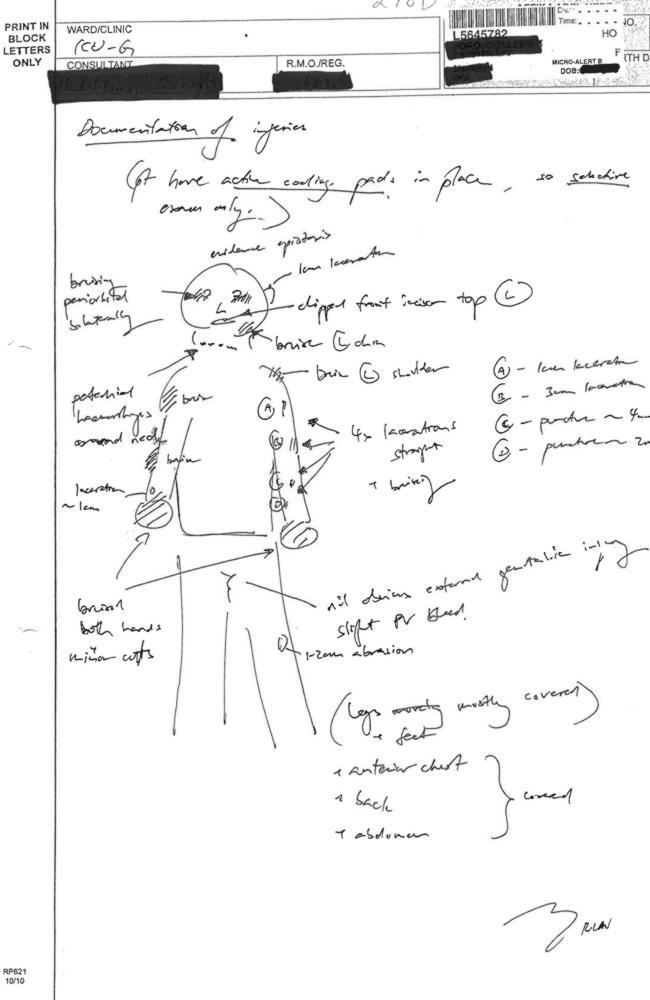 PRINT IN
BLOCK
LETTERS
ONLY
WARD/CLINIC
ICU-G
CONSULTANT
R.M.O./REG.
Time:
NO.
L5645782
HO
F
MICRO-ALERT B
DOB:
RTH D
Documentation of injuries
(pt have active cooling pads in place, so selective
exam only.)
evidence epistaxis
1cm laceration
bruising
periorbital
bilaterally
chipped front incisor top L
bruise L chin
bruise L shoulder
A - 1cm laceration
B - 3cm laceration
C - puncture ~ 4
D - puncture ~ 2
potential
haemorrhages
around neck
bruise
bruise
A
B
C
D
4x lacerations
straight
+ bruising
laceration
~ 1cm
bruised
both hands
minor cuts
nil obvious external genitalia injury
slight PV bleed.
1-2cm abrasion
(legs mostly covered)
+ feet
+ anterior chest
+ back
+ abdomen
covered
RP621
10/10